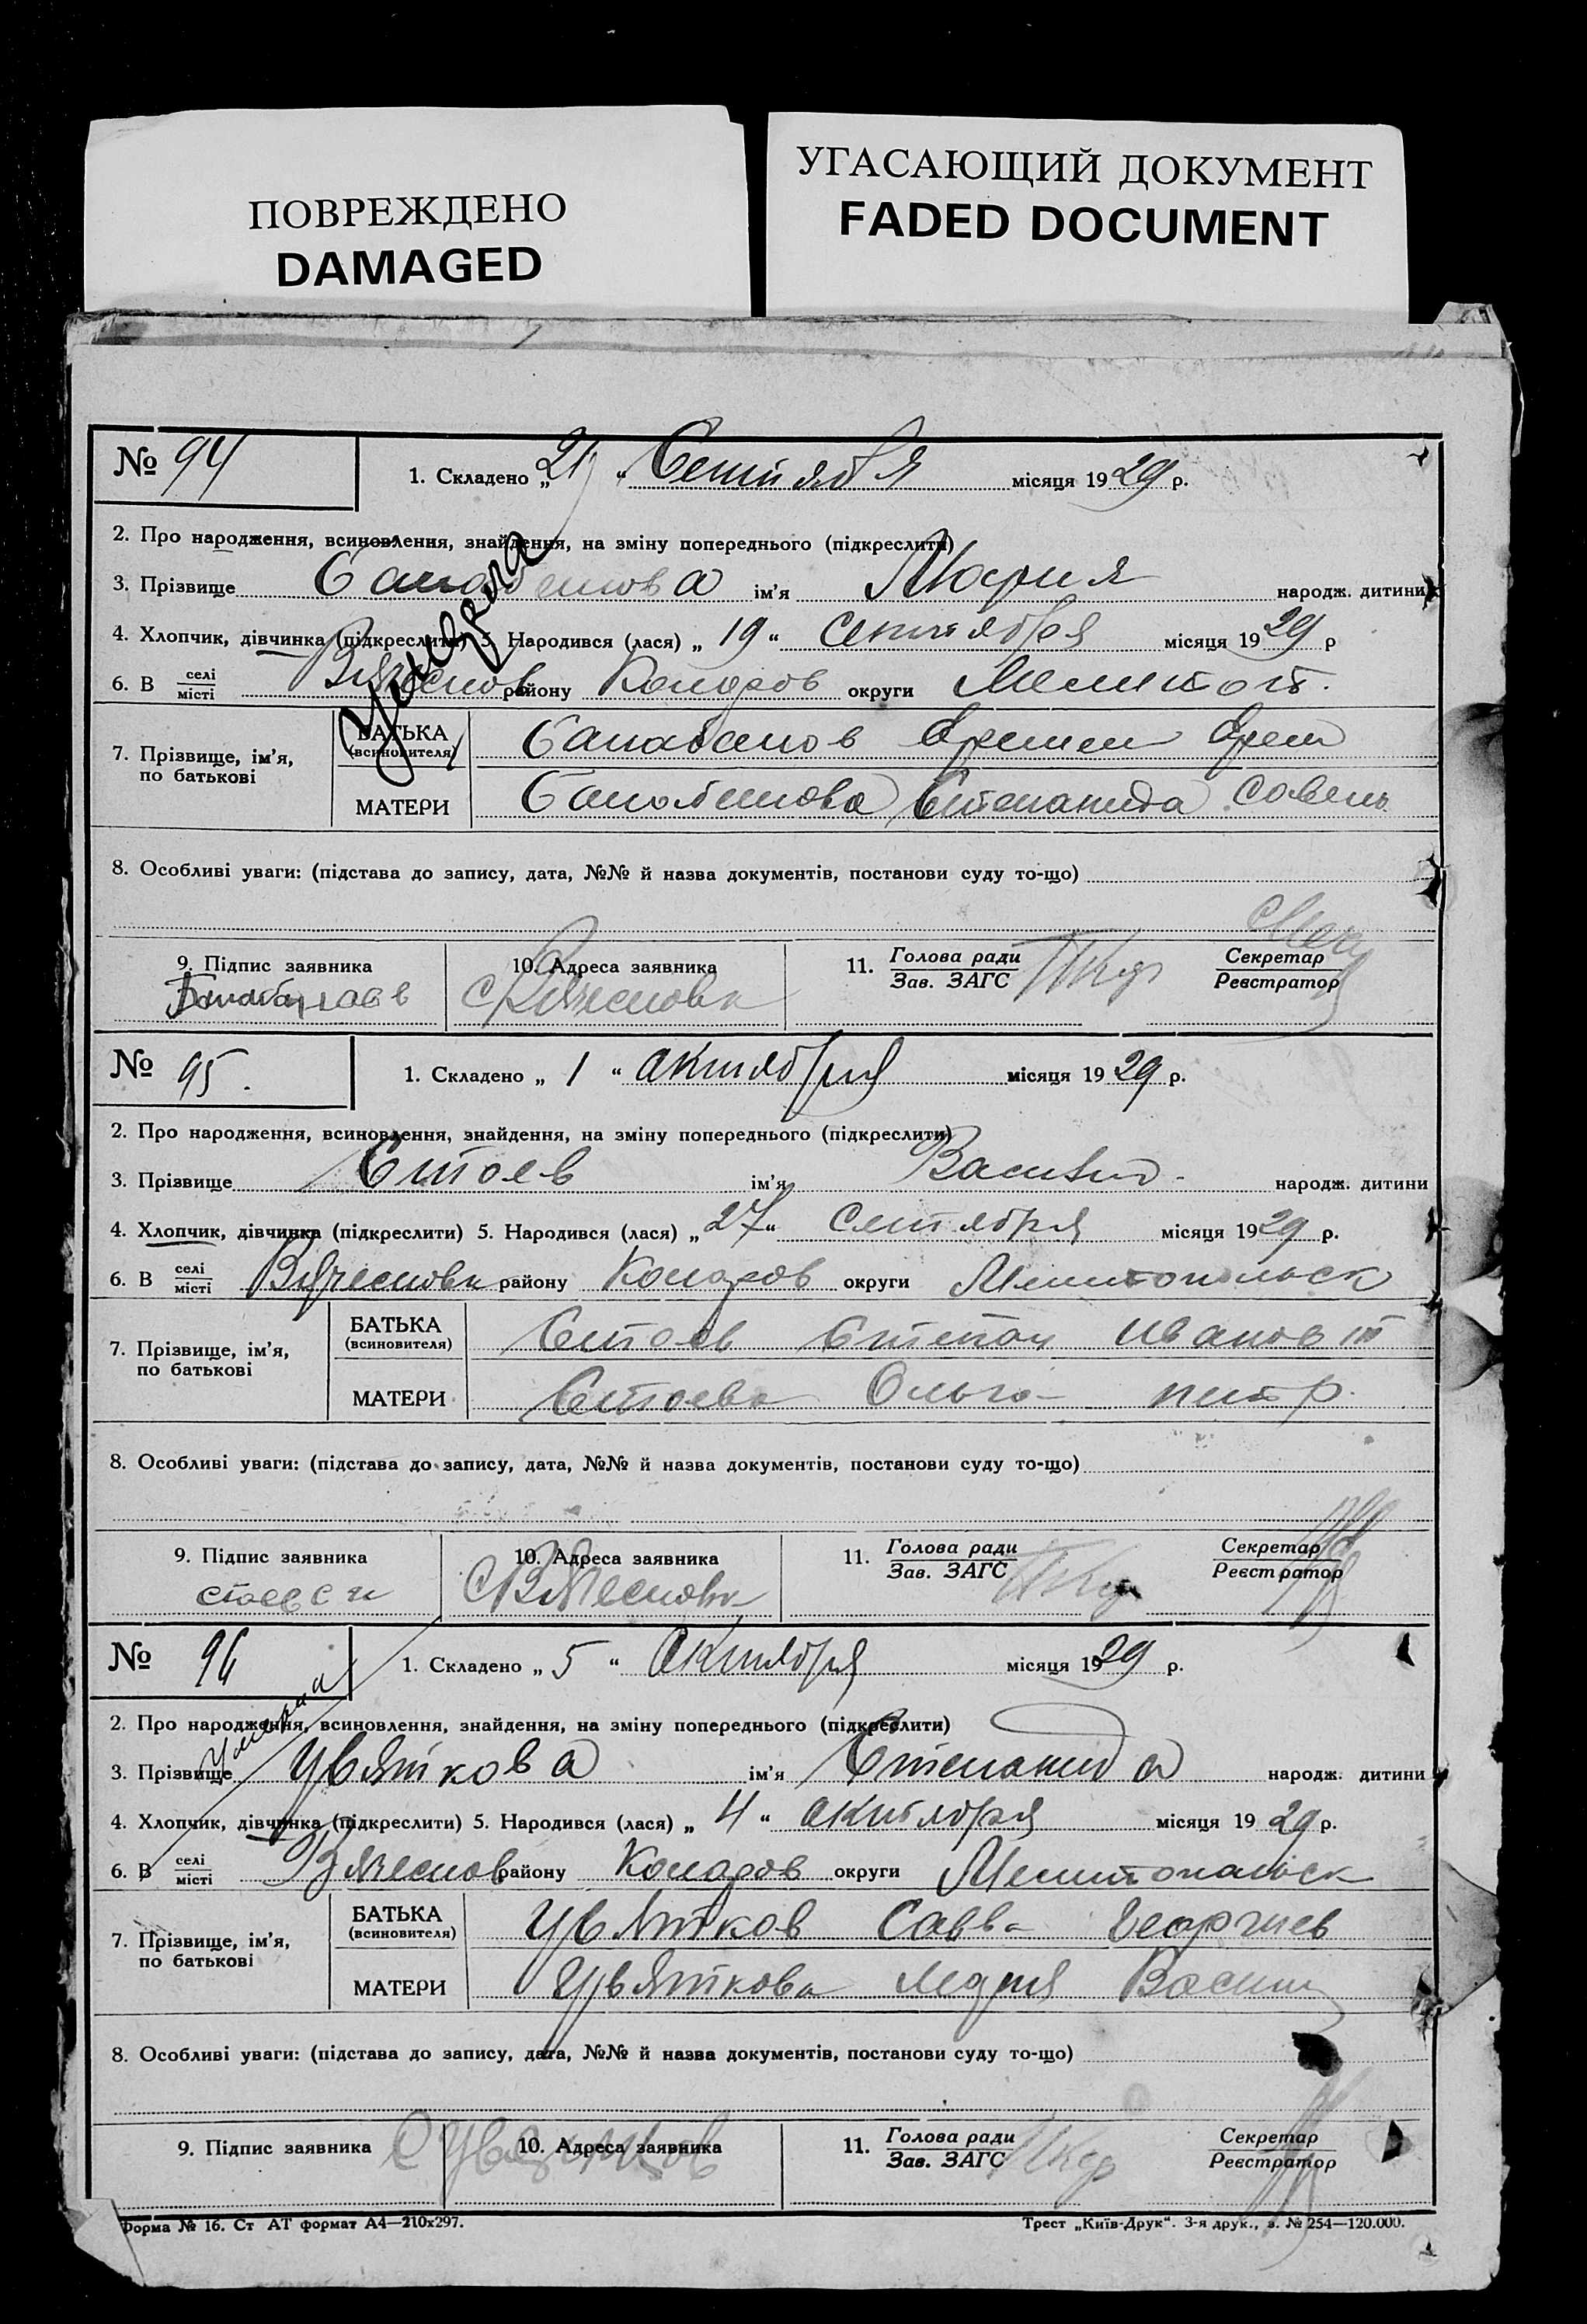 ПОВРЕЖДЕНО
DAMAGED
УГАСАЮЩИЙ ДОКУМЕНТ
FADED DOCUMENT
№ 94
1. Складено „21“ Сентября місяця 1929 р.
2. Про народження, всиновлення, знайдення, на зміну попереднього (підкреслити)
3. Прізвище ім’я Мария народж. дитини
4. Хлопчик, дівчинка (підкреслити) 5. Народився (лася) „19“ сентября місяця 1929 р
6. В селі/місті Вячеснов району Коларов округи Мелитоп.
Умерла
7. Прізвище, ім’я, по батькові
БАТЬКА (всиновителя) Балабанов
МАТЕРИ Степанида Савель
8. Особливі уваги: (підстава до запису, дата, №№ й назва документів, постанови суду то-що)
9. Підпис заявника
10. Адреса заявника
11. Голова ради/Зав. ЗАГС
Секретар/Реєстратор
с Вячесловка
№ 95.
1. Складено „1“ актября місяця 1929 р.
2. Про народження, всиновлення, знайдення, на зміну попереднього (підкреслити)
3. Прізвище Стоев ім’я Василий народж. дитини
4. Хлопчик, дівчинка (підкреслити) 5. Народився (лася) „27“ сентября місяця 1929 р.
6. В селі/місті Вячесновк району Коларов округи Мелитопольск
7. Прізвище, ім’я, по батькові
БАТЬКА (всиновителя) Стоев Степан Иванов
МАТЕРИ Стоева Ольга петр.
8. Особливі уваги: (підстава до запису, дата, №№ й назва документів, постанови суду то-що)
9. Підпис заявника
10. Адреса заявника
11. Голова ради/Зав. ЗАГС
Секретар/Реєстратор
стоев с и
с Вячесновка
№ 96
1. Складено „5“ актября місяця 1929 р.
Умерла
2. Про народження, всиновлення, знайдення, на зміну попереднього (підкреслити)
3. Прізвище Цвяткова ім’я Степанида народж. дитини
4. Хлопчик, дівчинка (підкреслити) 5. Народився (лася) „4“ актября місяця 1929 р.
6. В селі/місті Вячеснов району Коларов округи Мелитопальск
7. Прізвище, ім’я, по батькові
БАТЬКА (всиновителя) Цвятков Савва Георгиев
МАТЕРИ Цвяткова Мария Васил
8. Особливі уваги: (підстава до запису, дата, №№ й назва документів, постанови суду то-що)
9. Підпис заявника
10. Адреса заявника
11. Голова ради/Зав. ЗАГС
Секретар/Реєстратор
Форма № 16. Ст АТ формат А4—210х297.
Трест „Київ-Друк“. 3-я друк., з. № 254—120.000.